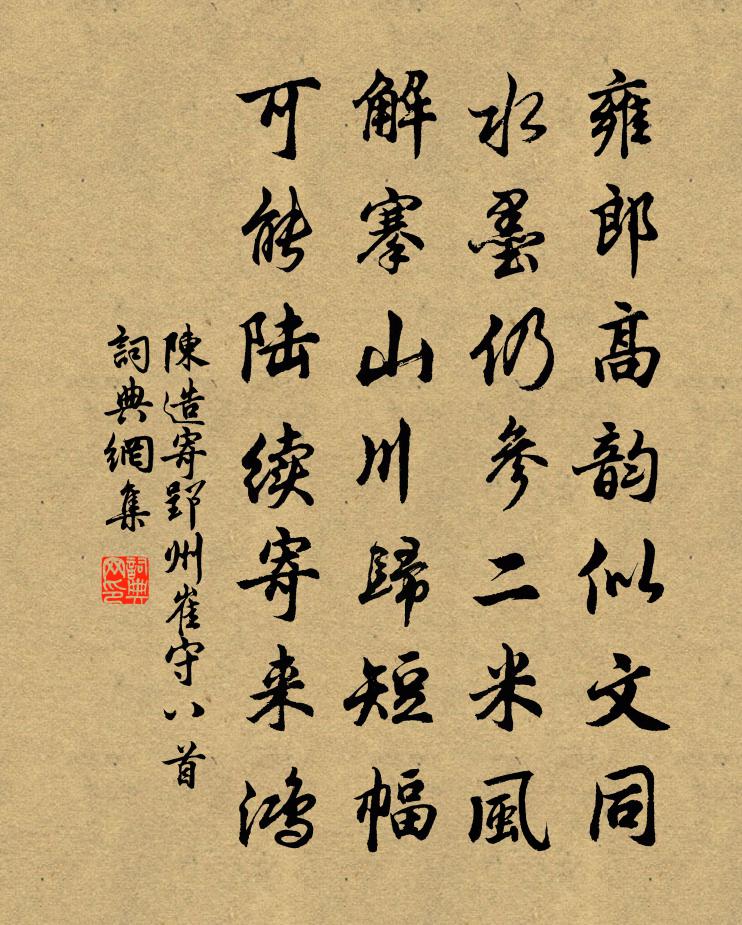 雍郎高韵似文同
水墨仍參二米風
解搴山川歸短幅
可能陆续寄来鸿
陳造寄郢州崔守八首
詞典網集
詞典网印